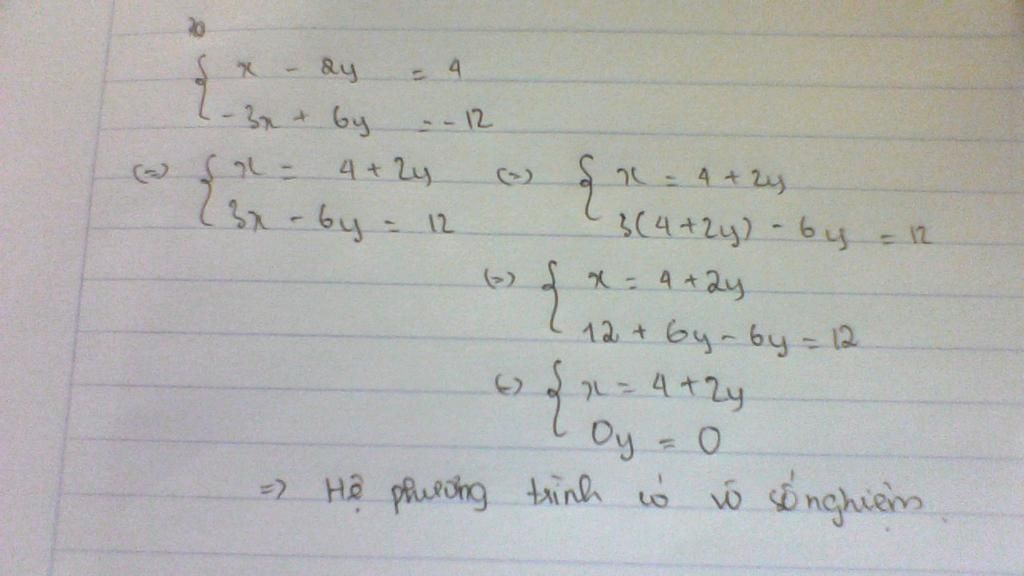 { x - 2y = 4
-3x + 6y = -12
(=) { x = 4 + 2y (=) { x = 4 + 2y
3x - 6y = 12 3(4 + 2y) - 6y = 12
(=) { x = 4 + 2y
12 + 6y - 6y = 12
(=) { x = 4 + 2y
0y = 0
=> Hệ phương trình có vô số nghiệm